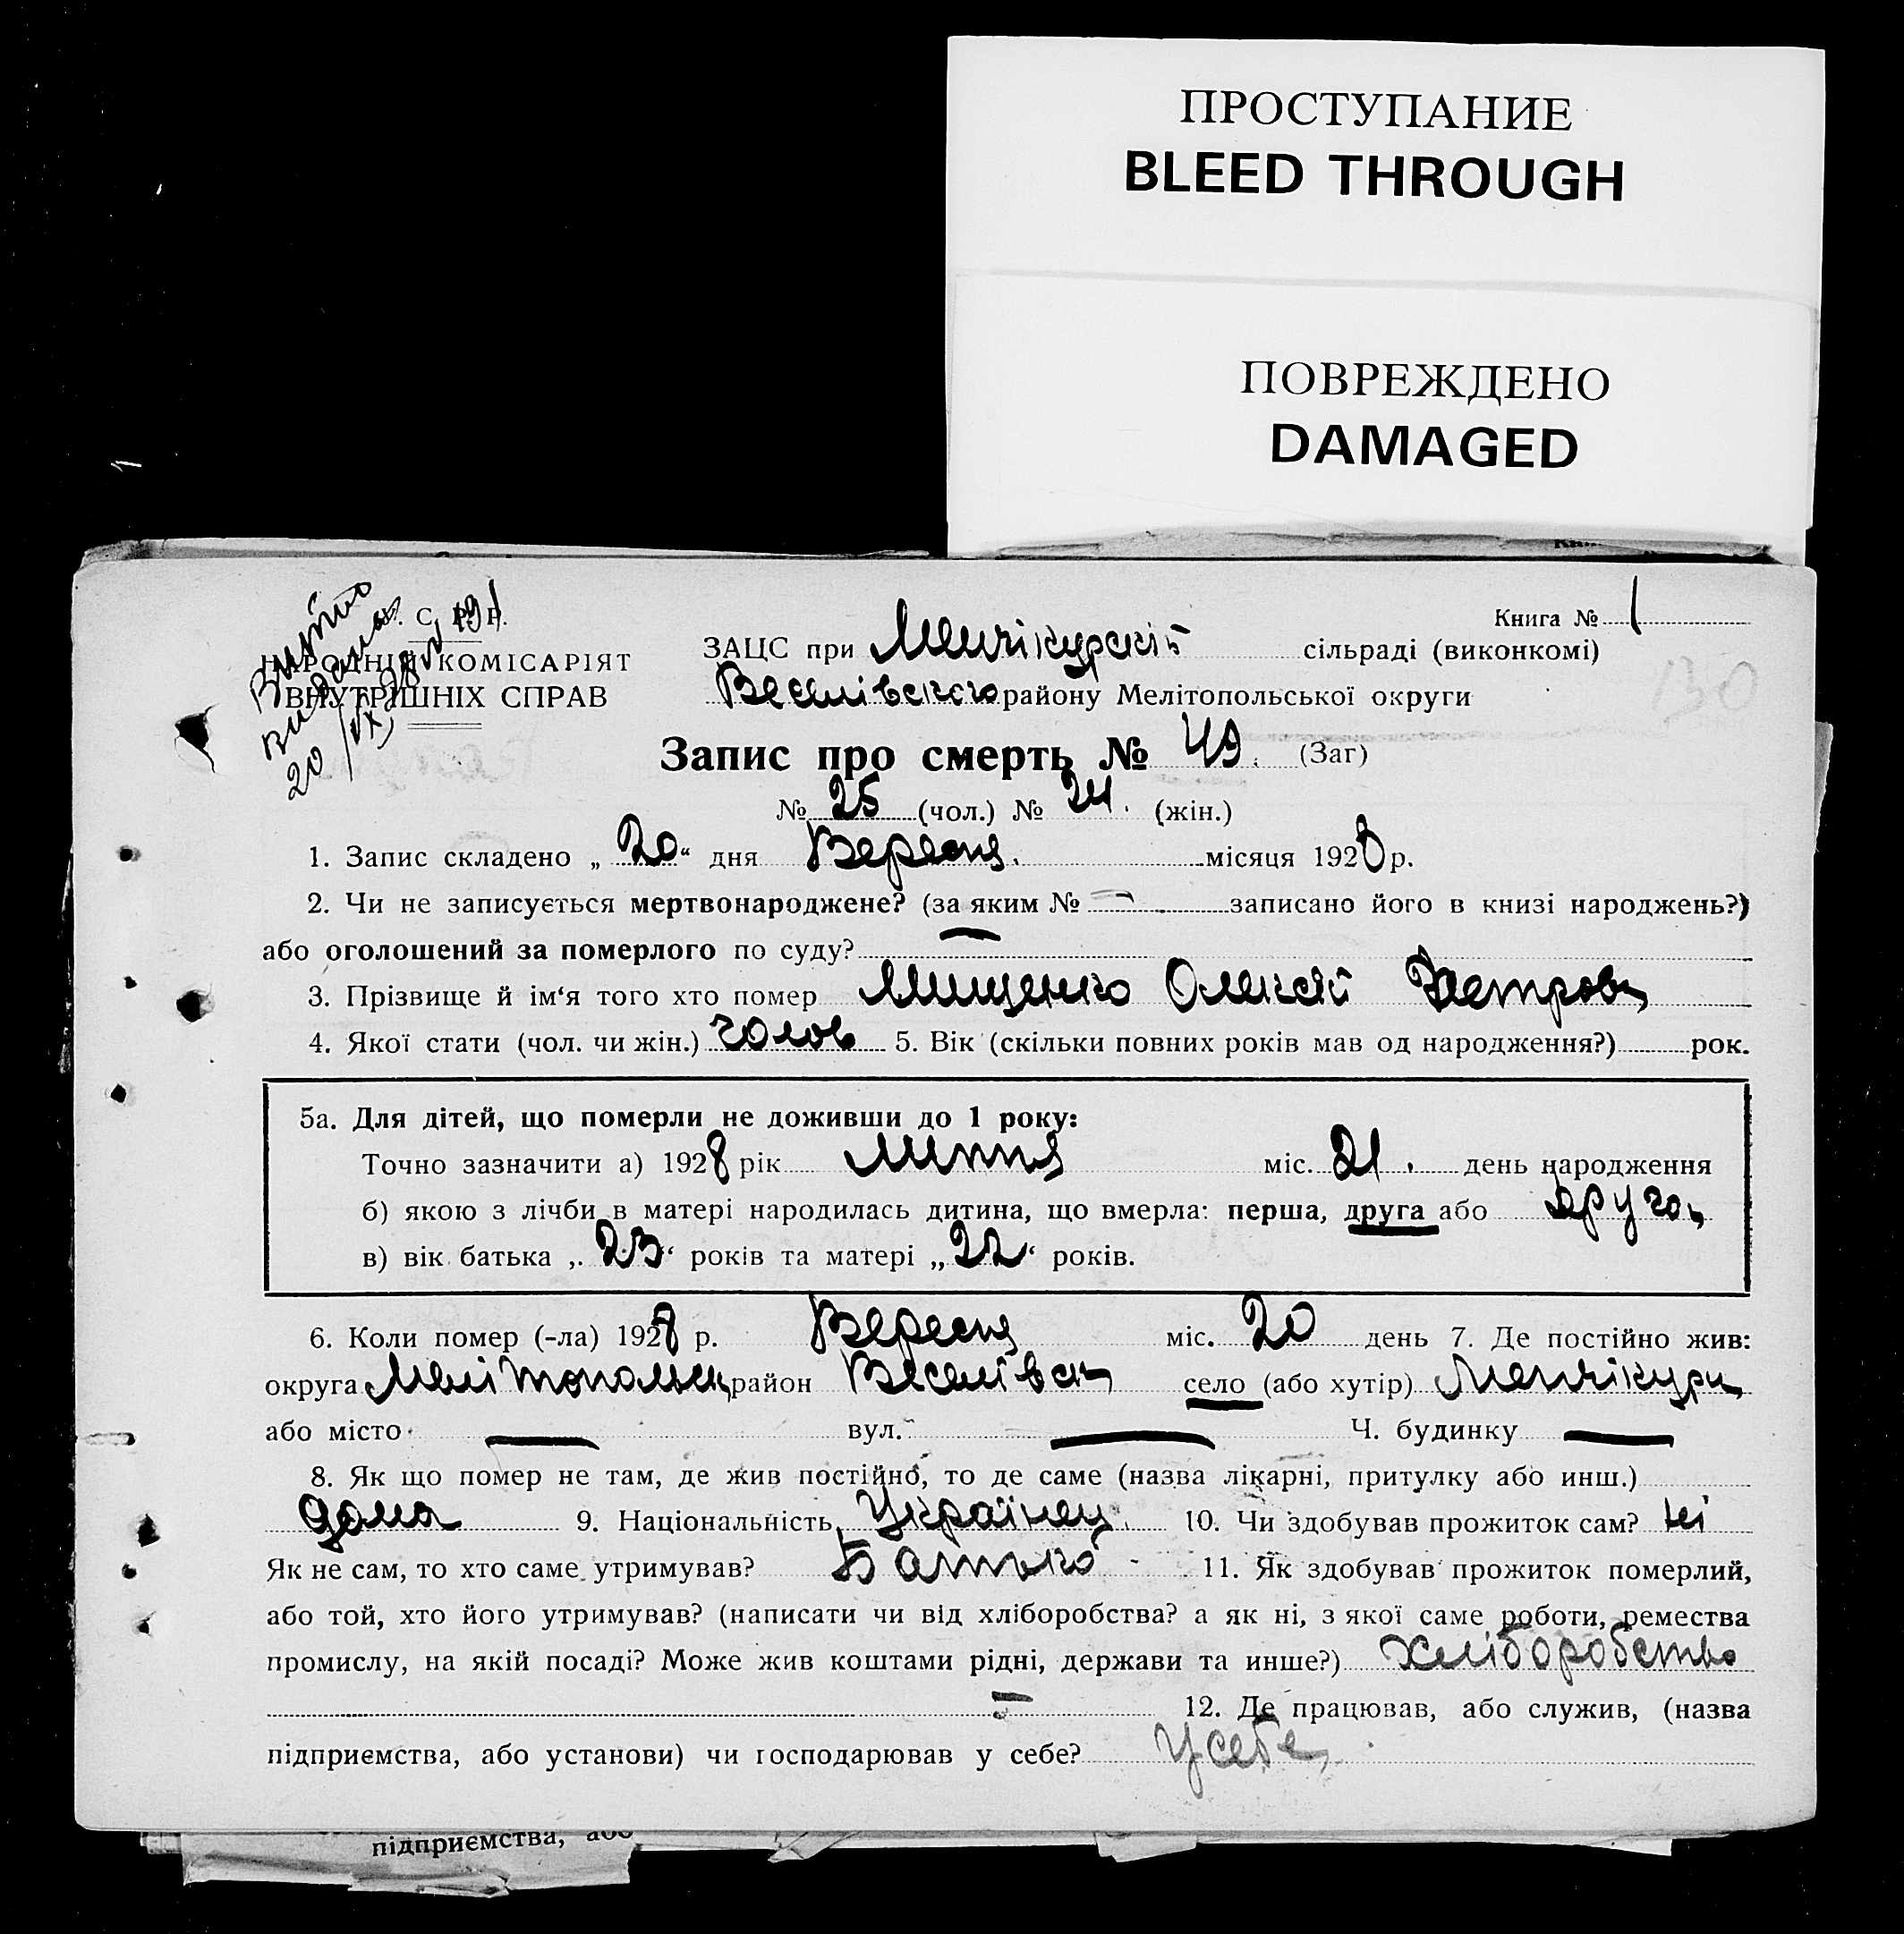 ПРОСТУПАНИЕ
BLEED THROUGH
ПОВРЕЖДЕНО
DAMAGED
У. С. Р. Р.
НАРОДНІЙ КОМІСАРІЯТ
ВНУТРІШНІХ СПРАВ
Витяг
видана
20/IX 28 р № 191
Книга № 1
ЗАЦС при Менчікурській сільраді (виконкомі)
130
Веселівського району Мелітопольської округи
Запис про смерть № 49. (Заг)
№ 25 (чол.) № 24. (жін.)
1. Запис складено „20“ дня Вересня. місяця 1928 р.
2. Чи не записується мертвонароджене? (за яким № — записано його в книзі народжень?)
або оголошений за померлого по суду? —
3. Прізвище й ім‘я того хто помер Мищенко Олексій Петров
4. Якої стати (чол. чи жін.) чолов 5. Вік (скільки повних років мав од народження?) рок.
5а. Для дітей, що померли не доживши до 1 року:
Точно зазначити а) 1928 рік Липня міс. 21. день народження
б) якою з лічби в матері народилась дитина, що вмерла: перша, друга або друга
в) вік батька „23“ років та матері „22“ років.
6. Коли помер (-ла) 1928 р. Вересня міс. 20 день 7. Де постійно жив:
округа Мелітопольськ район Веселівськ село (або хутір) Менчікури
або місто — вул. — Ч. будинку —
8. Як що помер не там, де жив постійно, то де саме (назва лікарні, притулку або инш.)
дома 9. Національність Українец. 10. Чи здобував прожиток сам? Ні
Як не сам, то хто саме утримував? Батько 11. Як здобував прожиток померлий,
або той, хто його утримував? (написати чи від хліборобства? а як ні, з якої саме роботи, ремества
промислу, на якій посаді? Може жив коштами рідні, держави та инше?) хліборобство
— 12. Де працював, або служив, (назва
підприємства, або установи) чи господарював у себе? У себе
підприємства, або